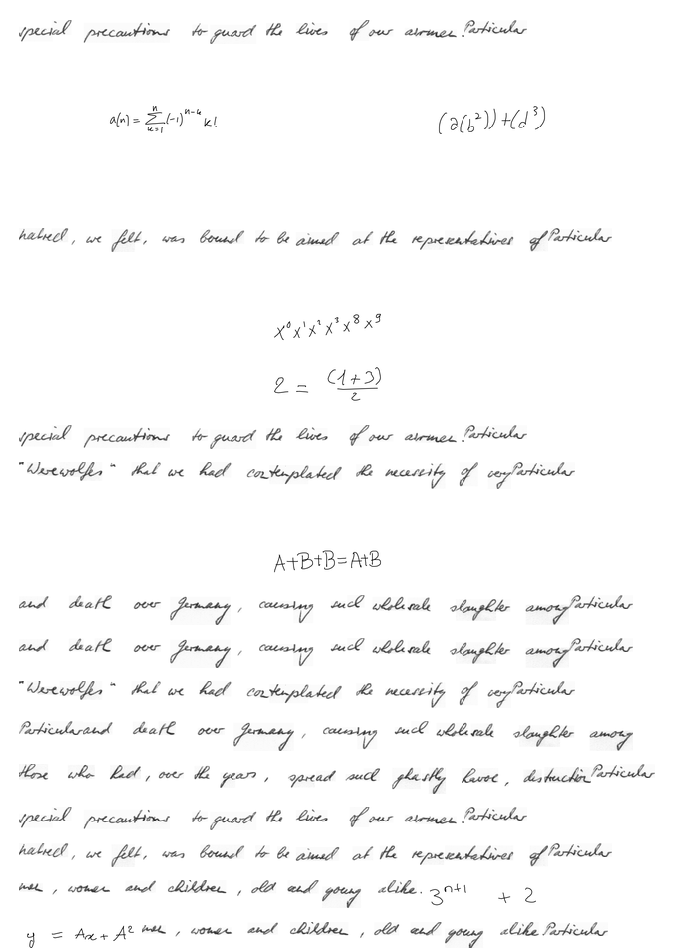 special precautions to guard the lives of our airmen. Particular
a(n) = \sum_{k=1}^{n} (-1)^{n-k} k! (a(b^2)) + (d^3)
hatred, we felt, was bound to be aimed at the representatives of Particular
x^0 x^1 x^2 x^3 x^8 x^9
2 = \frac{(1+3)}{2}
special precautions to guard the lives of our airmen. Particular
"Werewolfes" that we had contemplated the necessity of very Particular
A+B+B=A+B
and death over Germany, causing such wholesale slaughter among Particular
and death over Germany, causing such wholesale slaughter among Particular
"Werewolfes" that we had contemplated the necessity of very Particular
Particular and death over Germany, causing such wholesale slaughter among
those who had, over the years, spread such ghastly havoc, destruction Particular
special precautions to guard the lives of our airmen. Particular
hatred, we felt, was bound to be aimed at the representatives of Particular
men, women and children, old and young alike. 3^{n+1} + 2
y = Ax + A^2 men, women and children, old and young alike Particular